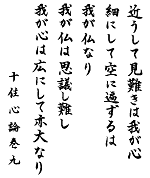 近うして見難きは我が心
細にして空に遍ずるは
我が仏なり
我が仏は思議し難し
我が心は広にして亦大なり
十住心論巻九